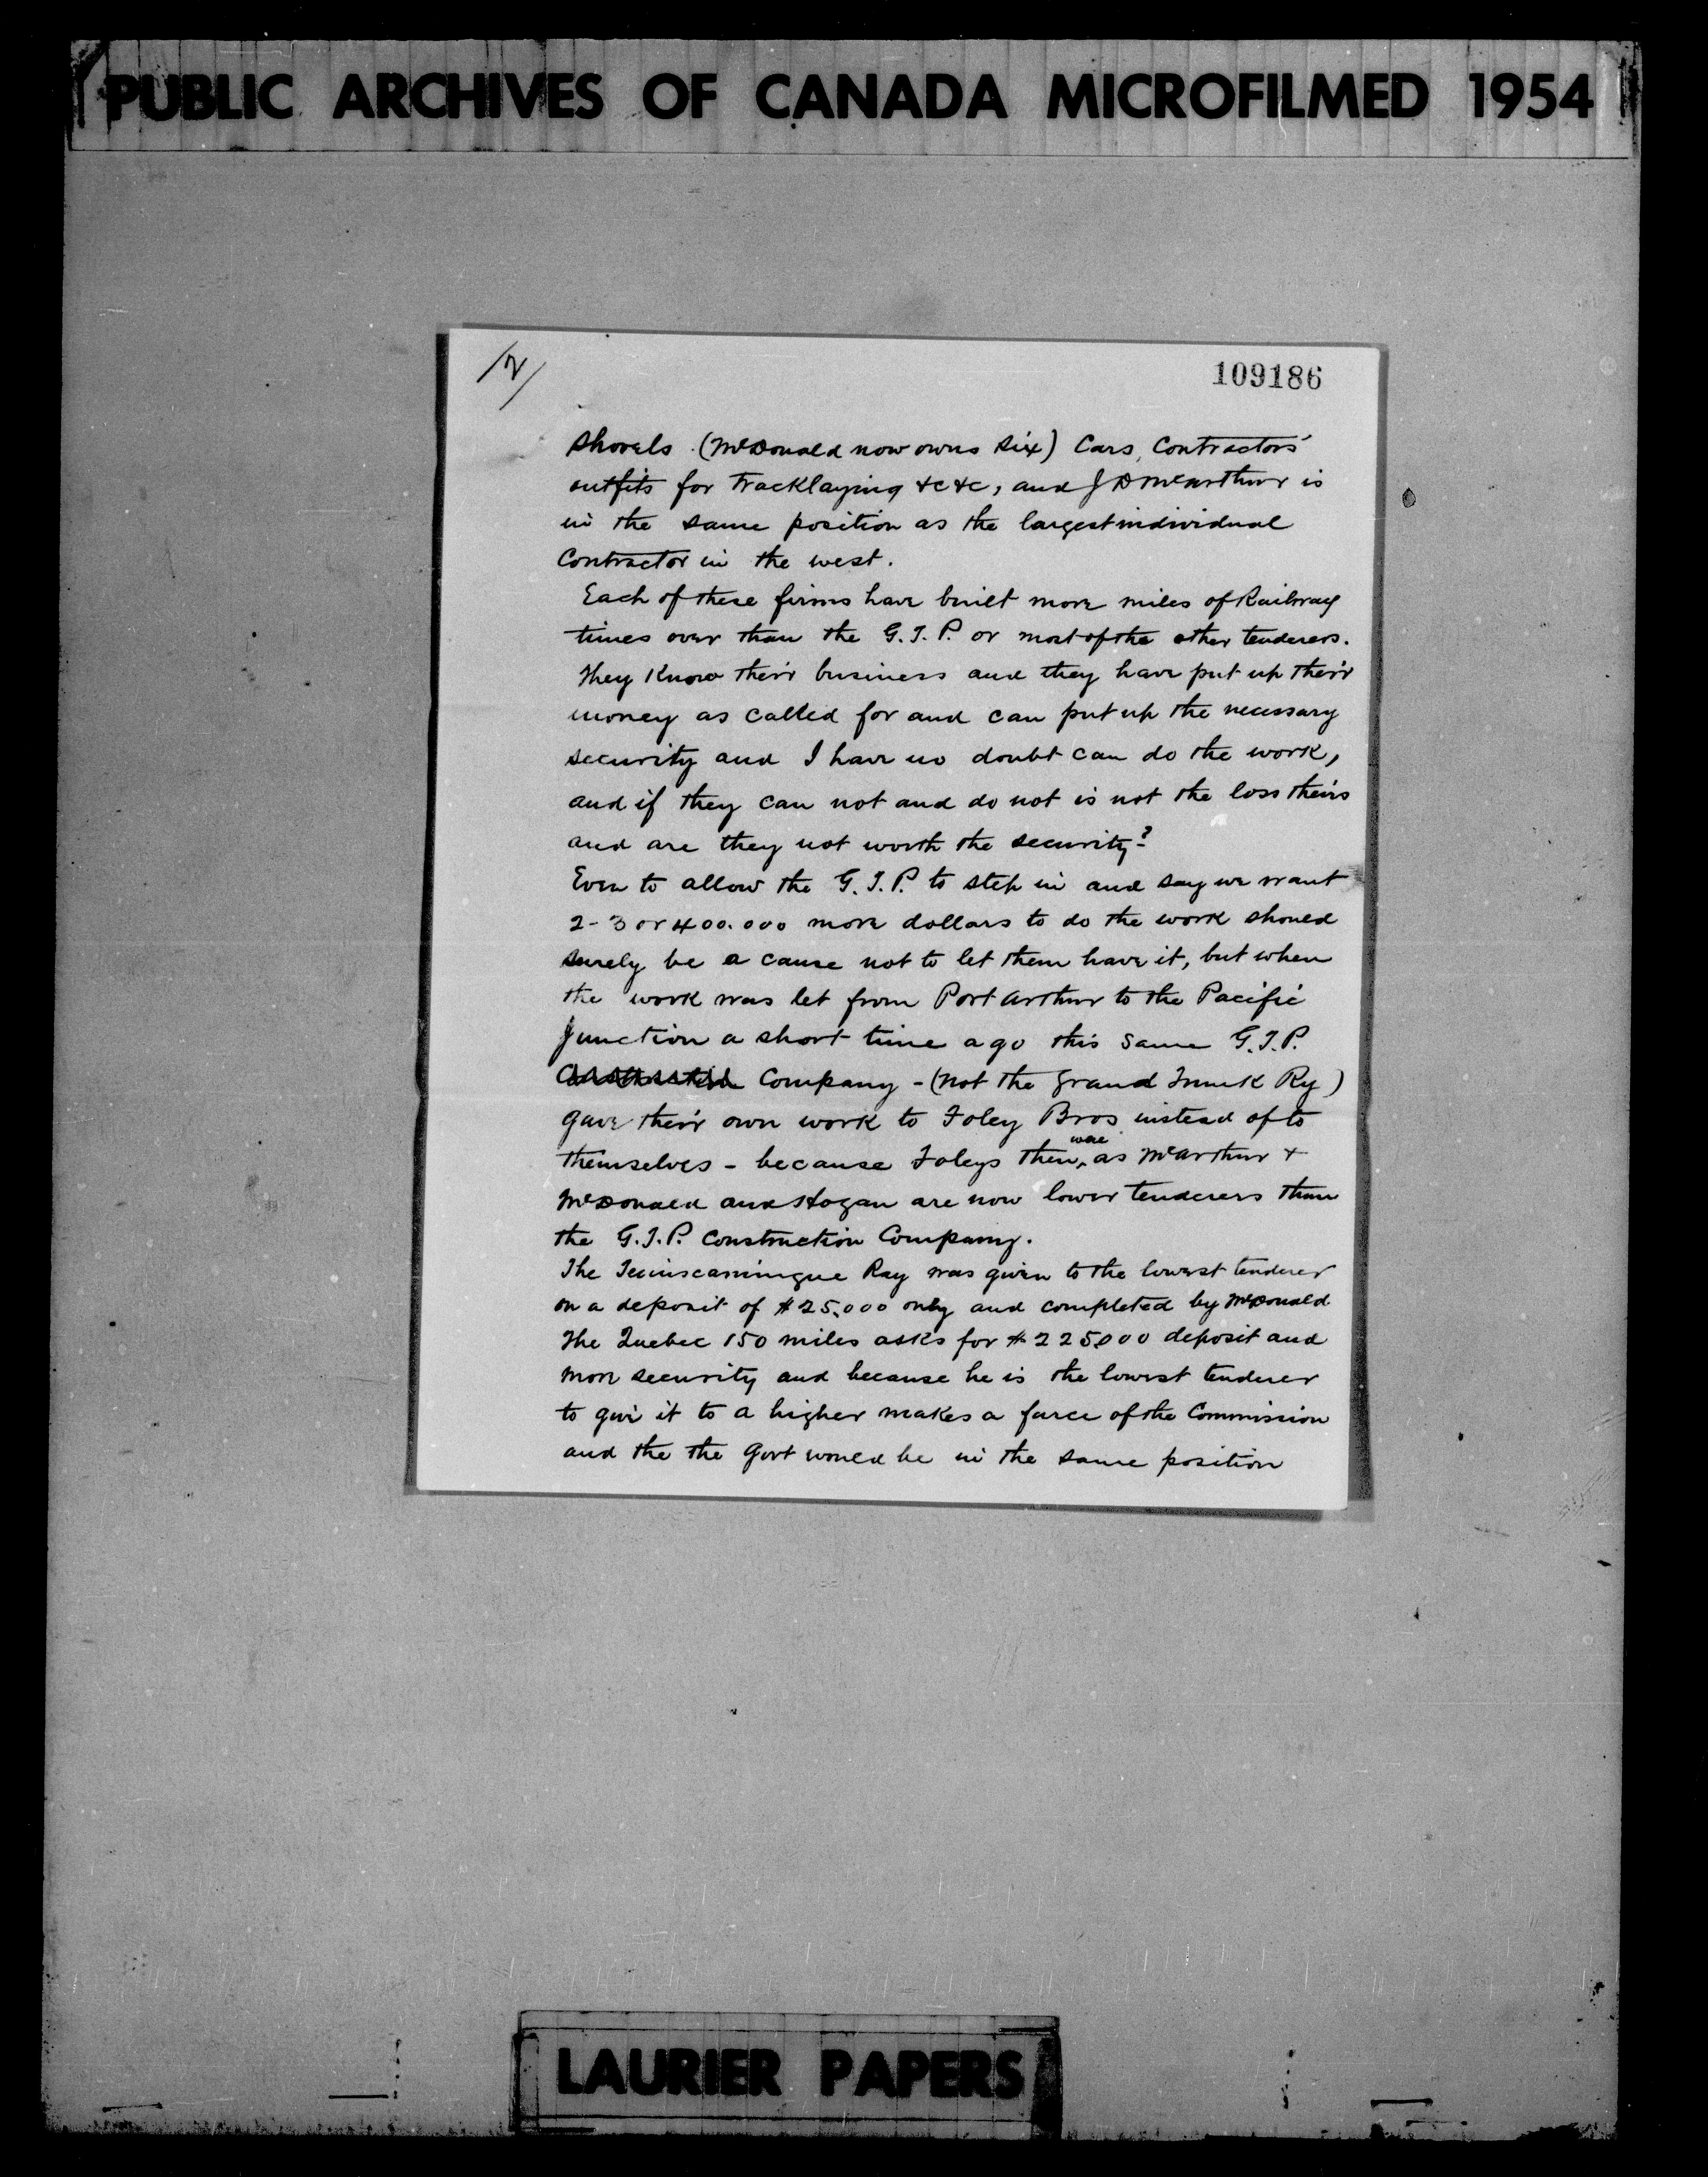 PUBLIC ARCHIVES OF CANADA MICROFILMED 1954
/2/
109186
Shovels (McDonald now owns six) Cars, Contractors'
outfits for Tracklaying &c &c, and J D McArthur is
in the same position as the largest individual
Contractor in the west.
Each of these firms have built more miles of Railway
times over than the G.T.P. or most of the other tenderers.
They Know their business and they have put up their
money as called for and can put up the necessary
security and I have no doubt can do the work,
and if they can not and do not is not the loss theirs
and are they not worth the security?
Even to allow the G.T.P. to step in and say we want
2-3 or 400.000 more dollars to do the work should
surely be a cause not to let them have it, but when
the work was let from Port Arthur to the Pacific
Junction a short time ago this same G.T.P.
Company - (not the Grand Trunk Ry)
gave their own work to Foley Bros instead of to
themselves - because Foleys then were as McArthur &
McDonald and Hogan are now lower tenderers than
the G.T.P. Construction Company.
The Temiscamingue Ray was given to the lowest tenderer
on a deposit of $25,000 only and completed by McDonald
The Quebec 150 miles asks for $225,000 deposit and
more security and because he is the lowest tenderer
to give it to a higher makes a farce of the Commission
and the the Govt would be in the same position
LAURIER PAPERS